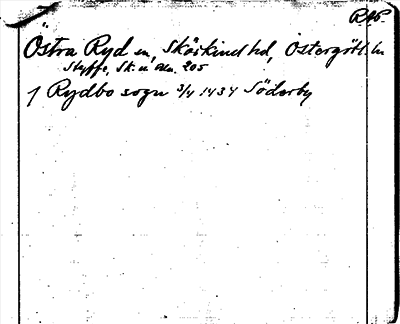 RAp.
Östra Ryd sn, Skärkind hd, Östergötl. ln
Styffe, Sk. u. un. 205
1 Rydbo sogn 3/4 1434 Söderby